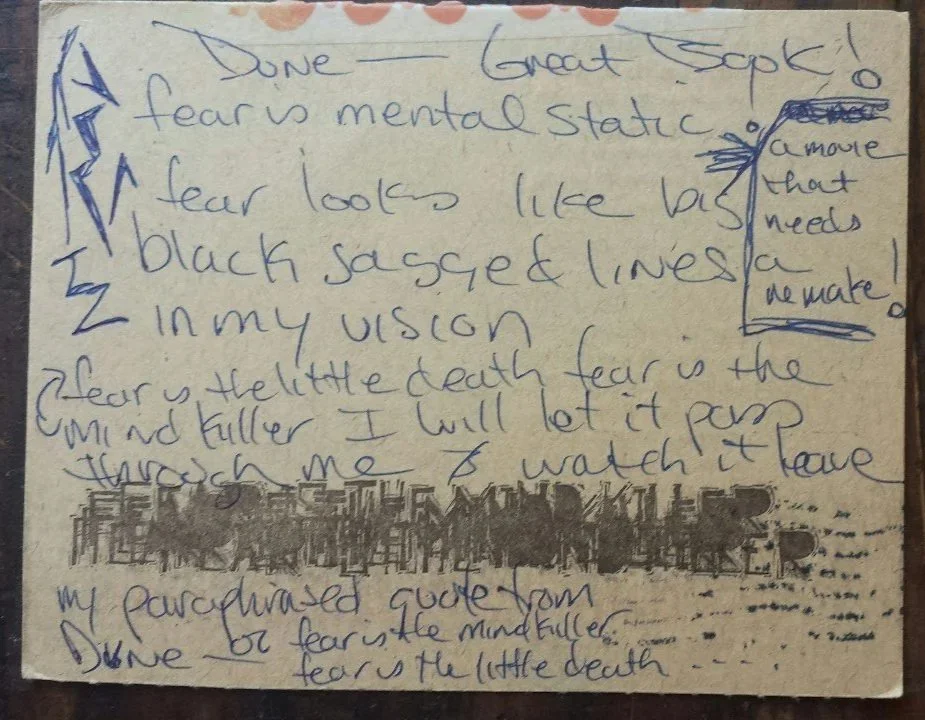 Dune — Great Book!
fear is mental static!
fear looks like big
black jagged lines
in my vision
a movie
that
needs
a
remake!
fear is the little death fear is the
mind killer I will let it pass
through me & watch it leave
FEAR IS THE MIND KILLER
my paraphrased quote from
Dune — or fear is the mind killer
fear is the little death ....